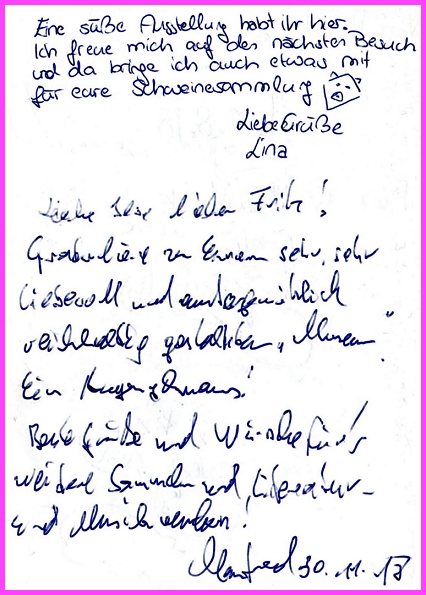 Eine süße Ausstellung habt ihr hier.
Ich freue mich auf den nächsten Besuch
und da bringe ich auch etwas mit
für eure Schweinesammlung
Liebe Grüße
Lina
Liebe lieber Fritz!
Gratuliere zu Eurem sehr, sehr
liebevoll und
reichhaltig gestalteten „Museum".
Ein Augenschmaus!
Beste Grüße und Wünsche für's
weitere Sammeln und Literatur-
und Musik
Manfred 30.11.13